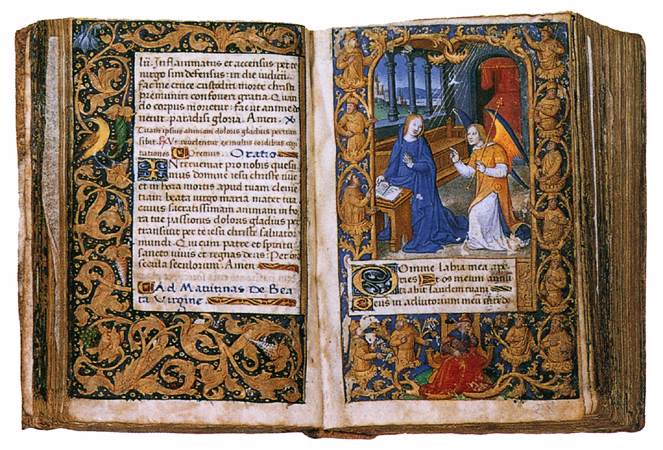 lii. Inflammatus et accensus per te
virgo sim defensus: in die iudicii
fac me cruce custodiri morte christi
premuniri confoveri gratia. Quan
do corpus morietur: fac ut anime do
netur paradisi gloria. Amen.
Tuam ipsius animam doloris gladius pertran
sibit. Ut revelentur ex multis cordibus cogi
tationes Oremus. Oratio
Interveniat pro nobis quesu
mus domine iesu christe nunc
et in hora mortis apud tuam clemen
tiam beata virgo maria mater tua
cuius sacratissimam animam in ho
ra tue passionis doloris gladius per
transivit per te iesu christe salvator
mundi. Qui cum patre et spiritu
sancto vivis et regnas deus. Per om
secula seculorum. Amen
Ad Matutinas De Bea
ta Virgine.
Domine labia mea ape
ries Et os meum annun
tiabit laudem tuam
Deus in adiutorium meum intende